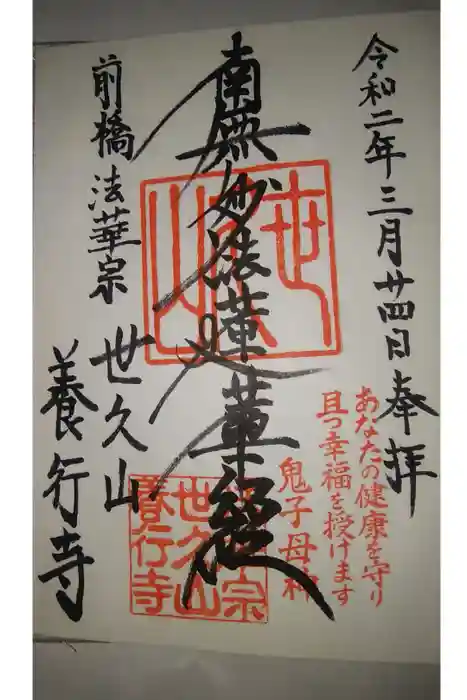 令和二年三月廿四日奉拝
あなたの健康を守り
且つ幸福を授けます
鬼子母神
南無妙法蓮華経
世久山
前橋法華宗
世久山
養行寺
宗
世久山
養行寺